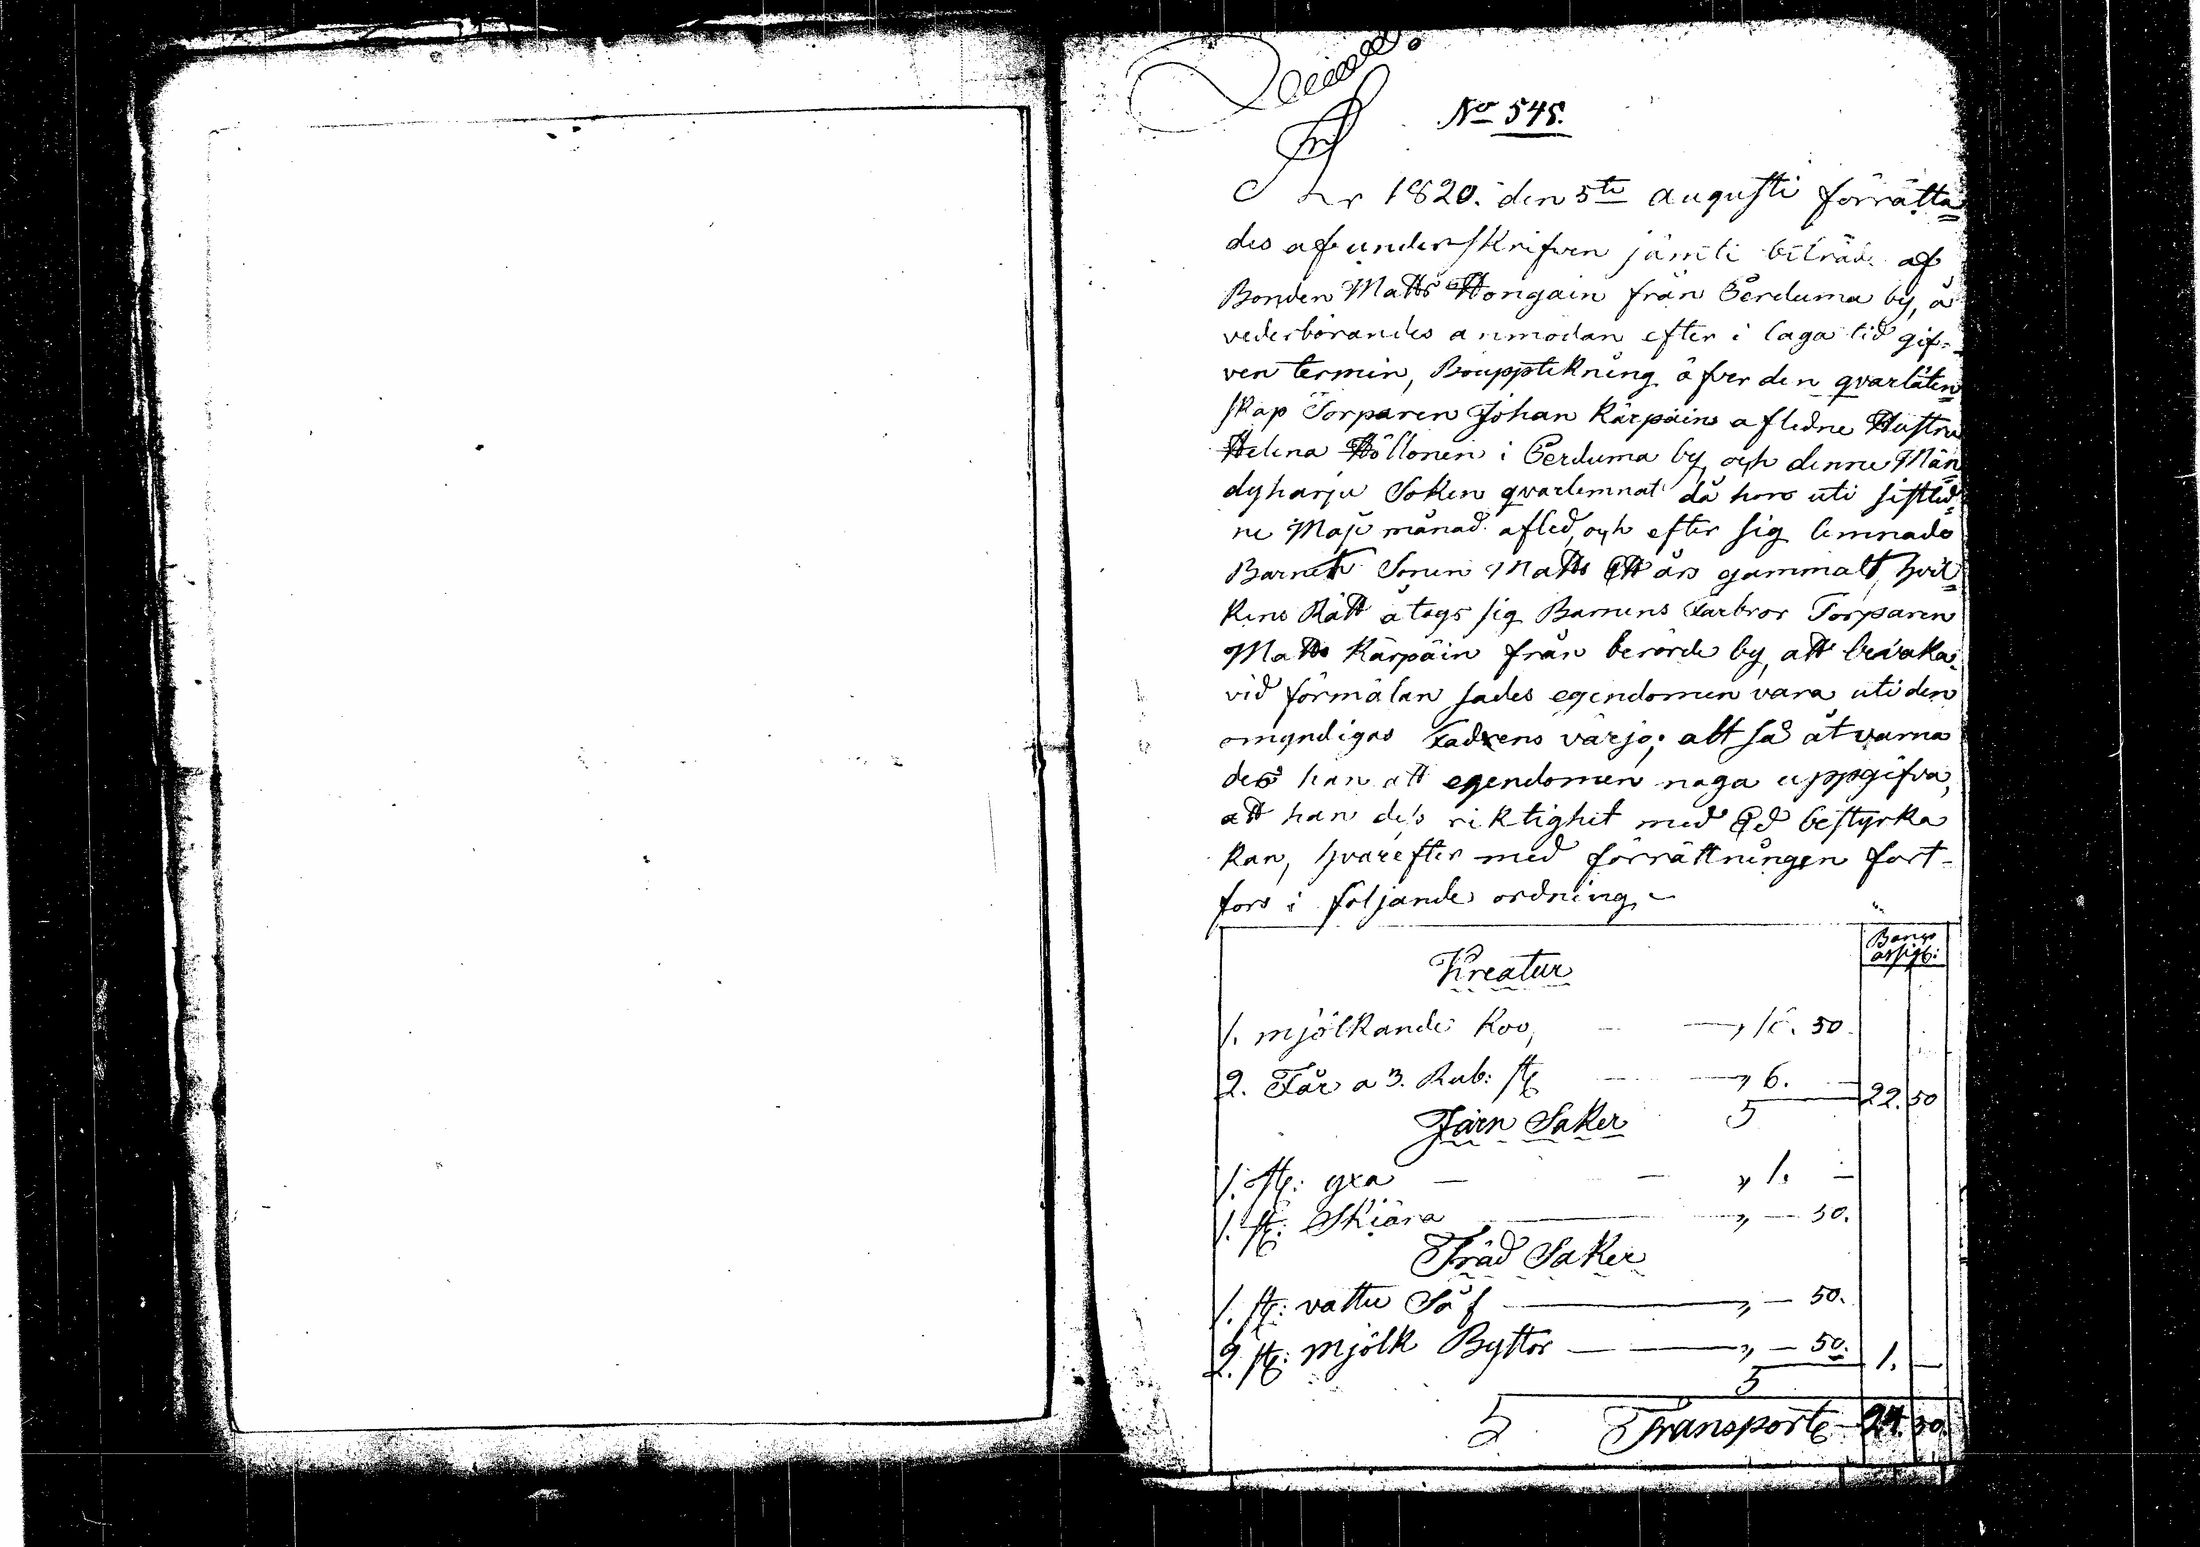 No 545.
År 1820. den 5te augusti förrätta=
des af underskrifven jämte biträde af
Bonden Matts Hongain från Perduma by, å
vederbörandes anmodan efter i laga tid gif=
ven termin, Boupptekning öfver den qvarlåten=
skap Torparen Johan Kärpäins aflidne Hustru
Helena Höllonen i Perduma by, och denne Män=
dyharju Soken qvarlemnat då hon uti sistled=
ne Maji månad afled, och efter sig lemnade
Barnet Sonen Matts Ett års gammalt, hvil=
kens Rätt åtogs sig Barnens Farbror Torparen
Matts Kärpäin från berörde by, att bevaka.
vid förmälan sades egendomen vara uti den
omyndigas Fadrens värjo; allt så åtvarna
des han att egendomen noga uppgifva,
att han des riktighet med Ed bestyrka
kan, hvarefter med förrättningen fort-
fors i följande ordning.
Banco
assigb:
Kreatur
1. mjölkande Koo, — — „ 16. 50.
2. Får a 3. Rub: st — „ 6. — 22. 50
Järn Saker
1. st: yxa — — „ 1. —
1. st: Skiära — „ — 50.
Träd Saker
1. st: vattu Så — „ — 50.
2. st: mjölk Byttor — — „ — 50. 1. —
Transport